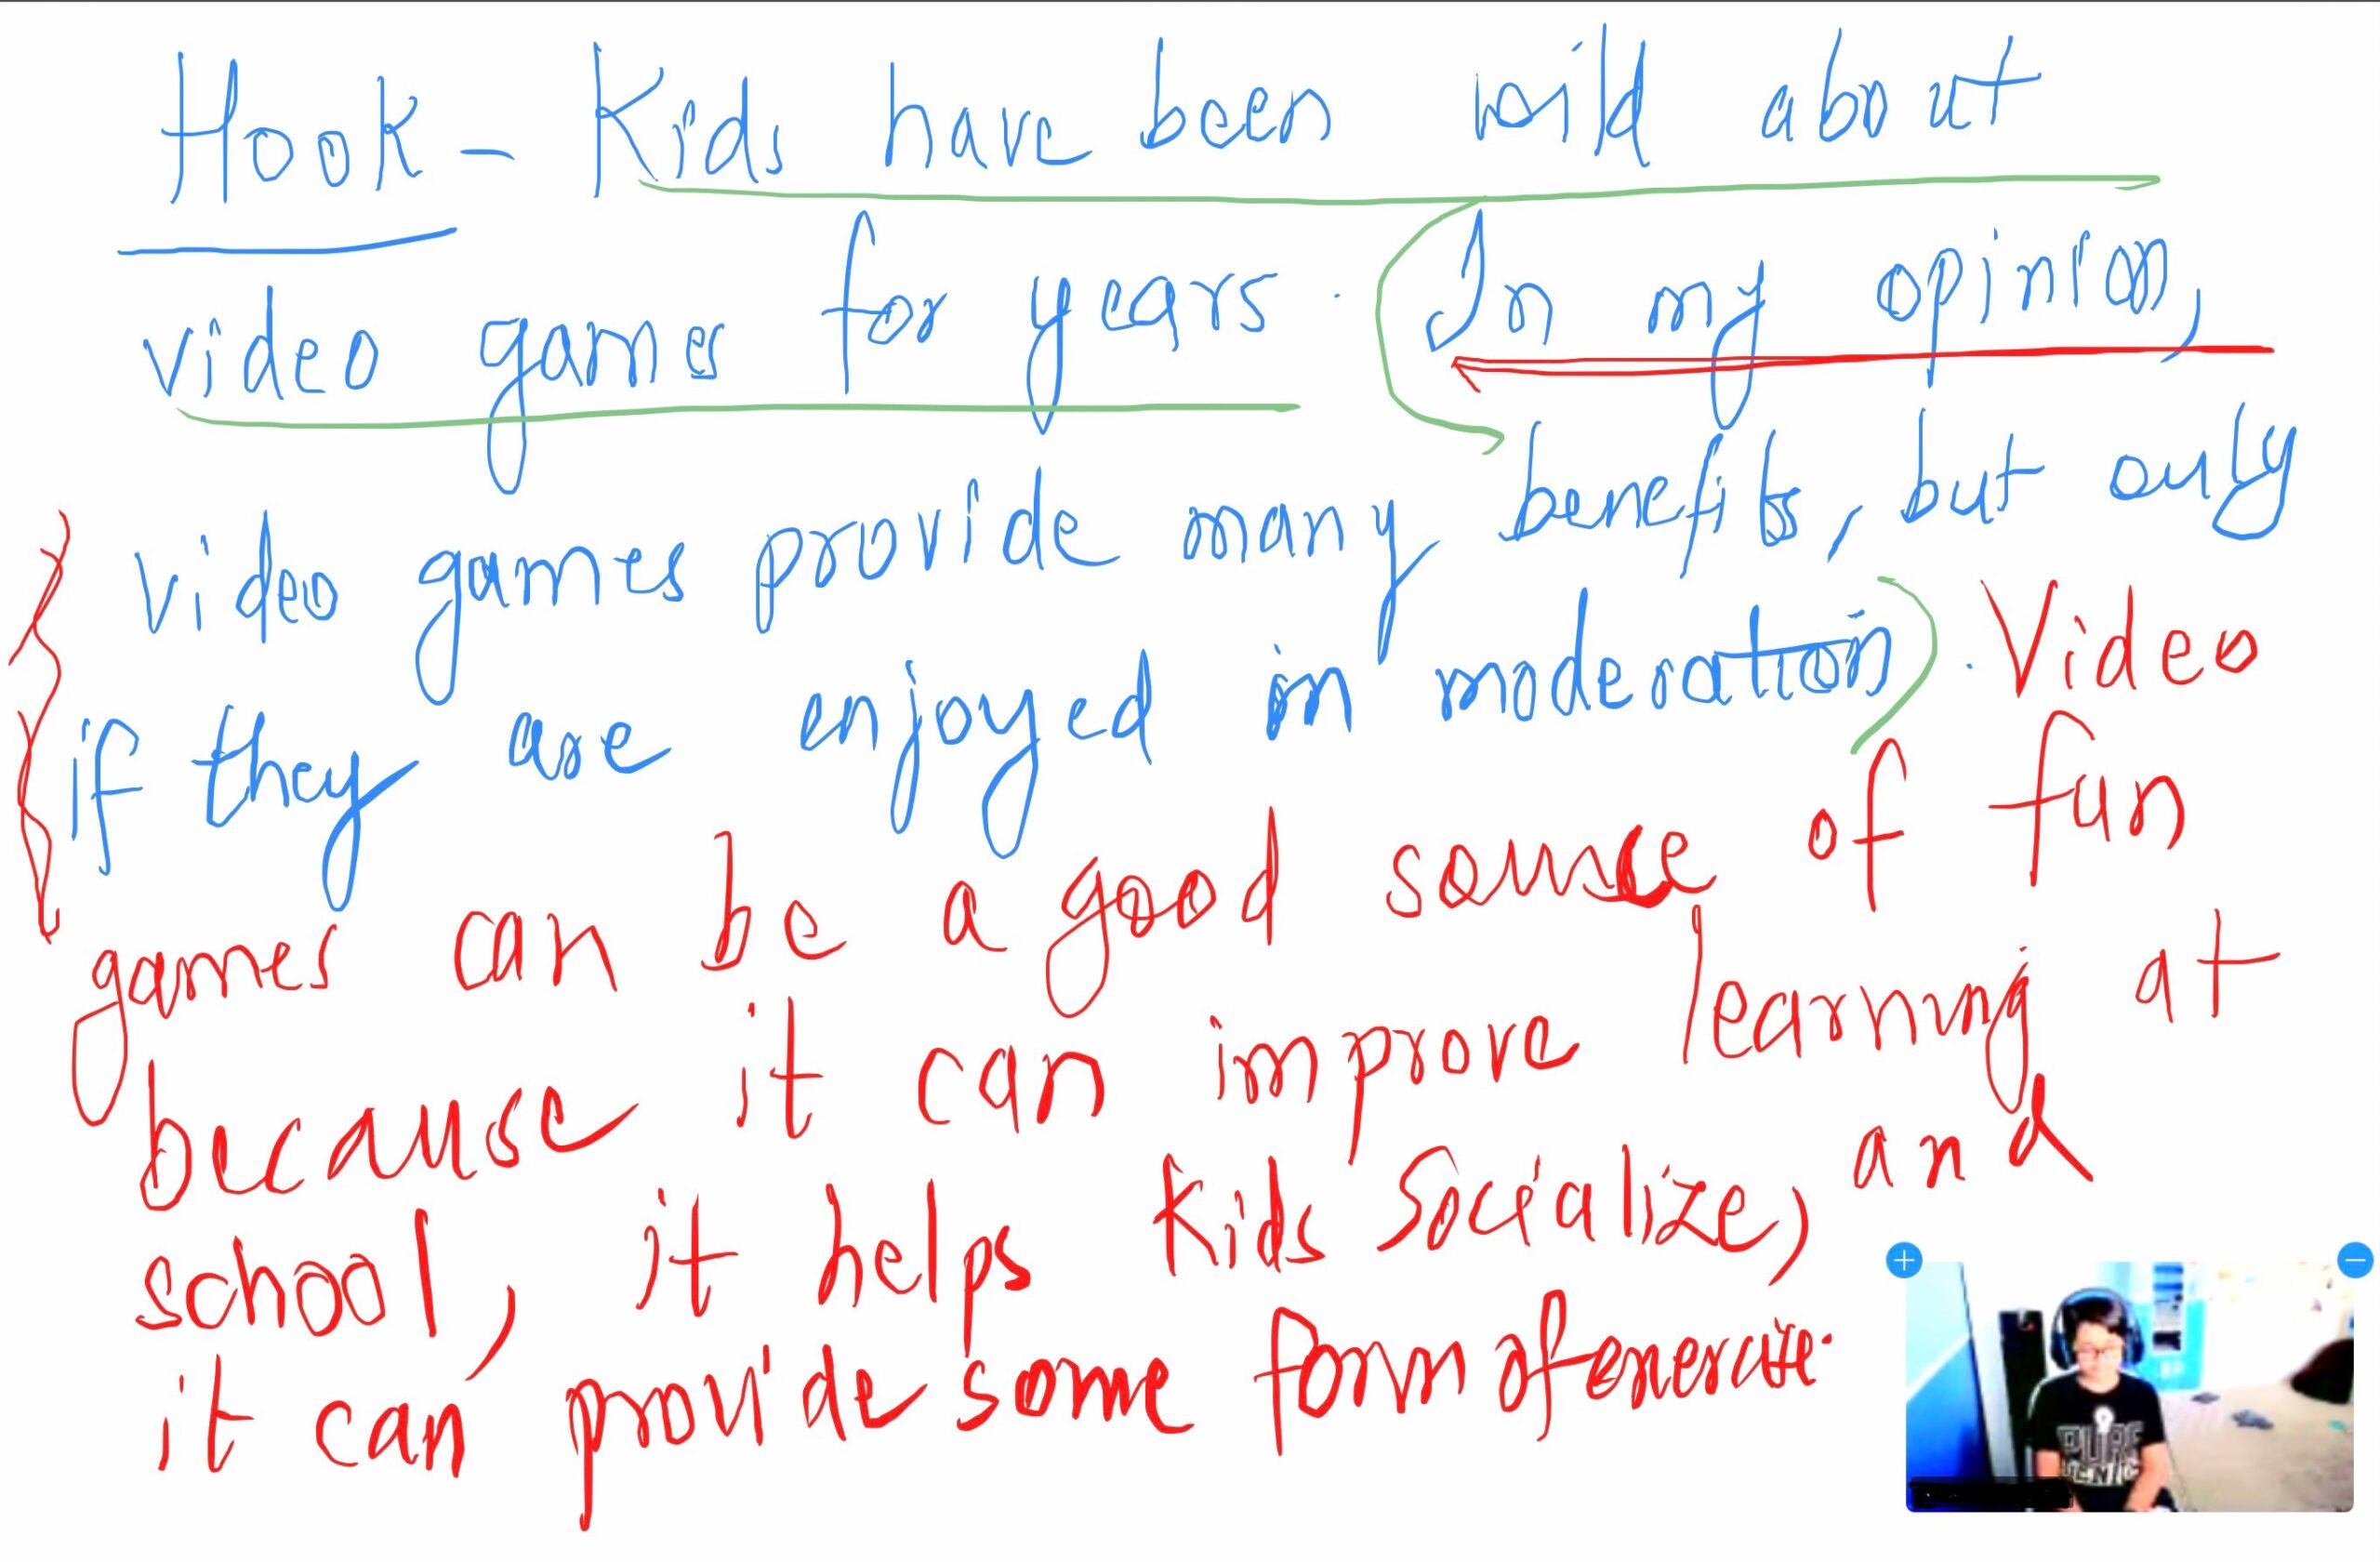 Hook - Kids have been wild about
video games for years. In my opinion,
video games provide many benefits, but only
if they are enjoyed in moderation. Video
games can be a good source of fun
because it can improve learning at
school, it helps kids socialize, and
it can provide some form of
PURE